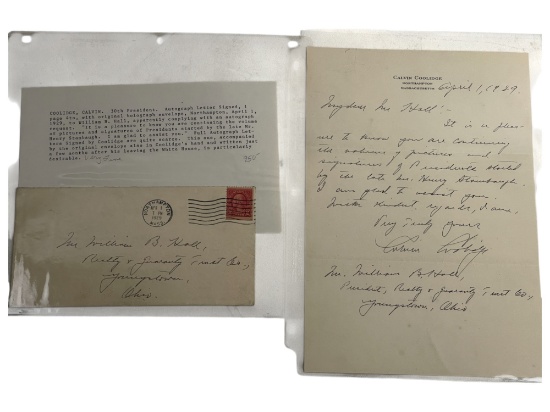 COOLIDGE, CALVIN. 30th President. Autograph Letter Signed, 1
page 8vo, with original holograph envelope, Northampton, April 1,
1929, to William B. Hall, apparently complying with an autograph
request. "It is a pleasure to know you are continuing the volume
of pictures and signatures of Presidents started by the late Mr.
Henry Stambaugh. I am glad to assist you." Full Autograph Let-
ters Signed by Coolidge are quite scarce. This one, accompanied
by the original envelope also in Coolidge's hand and written just
a few months after his leaving the White House, is particularly
desirable.
NORTHAMPTON
APR 1
1929
MASS.
Mr. William B. Hall,
Realty & Guaranty Trust Co.,
Youngstown,
Ohio.
CALVIN COOLIDGE
NORTHAMPTON
MASSACHUSETTS
April 1, 1929
My dear Mr. Hall:-
It is a pleas-
ure to know you are continuing
the volume of pictures and
signatures of Presidents started
by the late Mr. Henry Stambaugh.
I am glad to assist you.
With kindest regards, I am,
Very truly yours
Calvin Coolidge
Mr. William B. Hall,
President, Realty & Guaranty Trust Co.,
Youngstown, Ohio